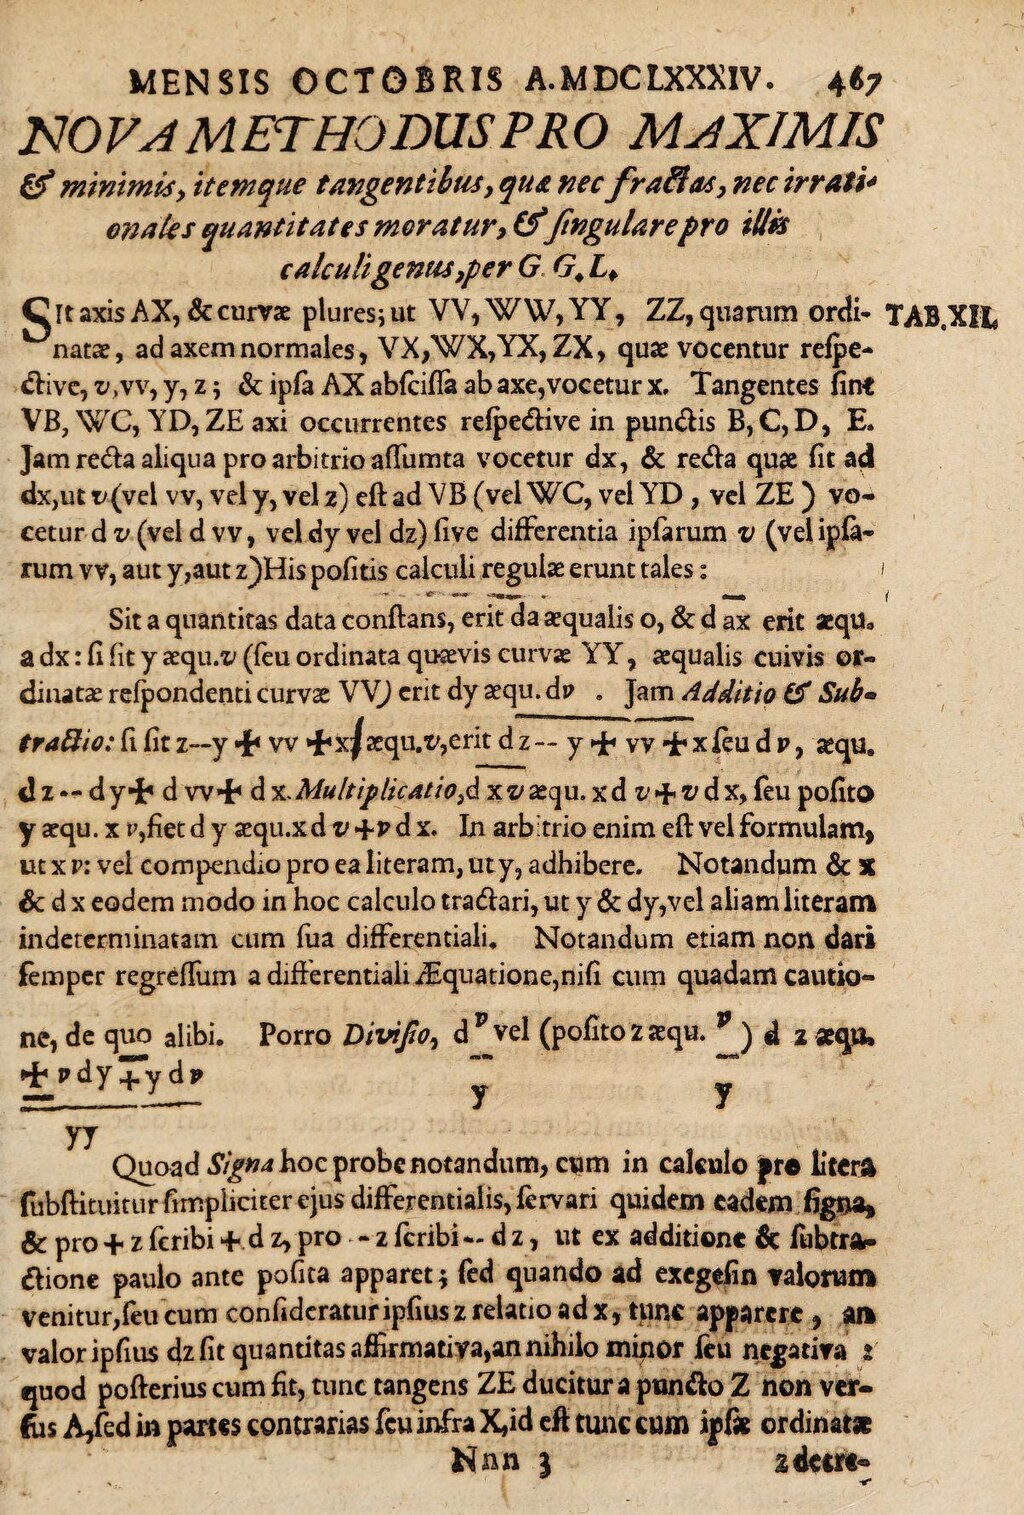 MENSIS OCTOBRIS A.MDCLXXXIV. 467
NOVA METHODUS PRO MAXIMIS
& minimis, itemque tangentibus, quæ nec fractas, nec irrati-
onales quantitates moratur, & ſingulare pro illis
calculi genus, per G. G. L.
SIt axis AX, & curvæ plures; ut VV, WW, YY, ZZ, quarum ordi- TAB. XII.
natæ, ad axem normales, VX, WX, YX, ZX, quæ vocentur reſpe-
ctive, v, vv, y, z; & ipſa AX abſciſſa ab axe, vocetur x. Tangentes ſint
VB, WC, YD, ZE axi occurrentes reſpective in punctis B, C, D, E.
Jam recta aliqua pro arbitrio aſſumta vocetur dx, & recta quæ ſit ad
dx, ut v (vel vv, vel y, vel z) eſt ad VB (vel WC, vel YD, vel ZE) vo-
cetur d v (vel d vv, vel dy vel dz) ſive differentia ipſarum v (vel ipſa-
rum vv, aut y, aut z) His poſitis calculi regulæ erunt tales:
Sit a quantitas data conſtans, erit da æqualis o, & d ax erit æqu.
a dx: ſi ſit y æqu. v (ſeu ordinata quævis curvæ YY, æqualis cuivis or-
dinatæ reſpondenti curvæ VV) erit dy æqu. dv . Jam Additio & Sub-
tractio: ſi ſit z -- y + vv + x / æqu. v, erit d z -- y + vv + x ſeu d v, æqu.
d z -- d y + d vv + d x. Multiplicatio, d x v æqu. x d v + v d x, ſeu poſito
y æqu. x v, fiet d y æqu. x d v + v d x. In arbitrio enim eſt vel formulam,
ut x v: vel compendio pro ea literam, ut y, adhibere. Notandum & x
& d x eodem modo in hoc calculo tractari, ut y & dy, vel aliam literam
indeterminatam cum ſua differentiali. Notandum etiam non dari
ſemper regreſſum a differentiali Æquatione, niſi cum quadam cautio-
ne, de quo alibi. Porro Diviſio, d v vel (poſito z æqu. v ) d z æqu.
± v dy ∓ y d v y y
yy
Quoad Signa hoc probe notandum, cum in calculo pro litera
ſubſtituitur ſimpliciter ejus differentialis, ſervari quidem eadem ſigna,
& pro + z ſcribi + d z, pro -- z ſcribi -- d z, ut ex additione & ſubtra-
ctione paulo ante poſita apparet; ſed quando ad exegeſin valorum
venitur, ſeu cum conſideratur ipſius z relatio ad x, tunc apparere, an
valor ipſius dz ſit quantitas affirmativa, an nihilo minor ſeu negativa :
quod poſterius cum fit, tunc tangens ZE ducitur a puncto Z non ver-
ſus A, ſed in partes contrarias ſeu infra X, id eſt tunc cum ipſæ ordinatæ
Nnn 3 z decre-